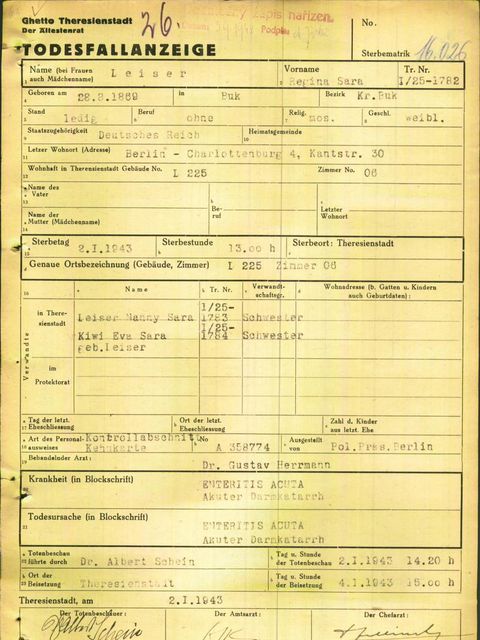 Ghetto Theresienstadt
Der Ältestenrat
TODESFALLANZEIGE
26.
zápis nařízen.
No.
Sterbematrik 16.026
Name (bei Frauen auch Mädchenname) Leiser Vorname Regina Sara Tr. Nr. I/25-1782
Geboren am 28.2.1869 in Buk Bezirk Kr.Buk
Stand ledig Beruf ohne Relig. mos. Geschl. weibl.
Staatszugehörigkeit Deutsches Reich Heimatsgemeinde
Letzer Wohnort (Adresse) Berlin - Charlottenburg 4, Kantstr. 30
Wohnhaft in Theresienstadt Gebäude No. L 225 Zimmer No. 06
Name des Vater Beruf Letzter Wohnort
Name der Mutter (Mädchenname)
Sterbetag 2.I.1943 Sterbestunde 13.00 h Sterbeort: Theresienstadt
Genaue Ortsbezeichnung (Gebäude, Zimmer) L 225 Zimmer 06
Verwandte
Name Tr. Nr. Verwandtschaftsgr. Wohnadresse (b. Gatten u. Kindern auch Geburtdaten):
in Theresienstadt
Leiser Nanny Sara I/25-1783 Schwester
Kiwi Eva Sara geb.Leiser I/25-1784 Schwester
im Protektorat
Tag der letzt. Eheschliessung Ort der letzt. Eheschliessung Zahl d. Kinder aus letzt. Ehe
Art des Personalausweises Kontrollabschnitt Kennkarte No A 358774 Ausgestellt von Pol.Präs.Berlin
Behandelnder Arzt: Dr. Gustav Herrmann
Krankheit (in Blockschrift) ENTERITIS ACUTA
Akuter Darmkatarrh
Todesursache (in Blockschrift) ENTERITIS ACUTA
Akuter Darmkatarrh
Totenbeschau führte durch Dr. Albert Schein Tag u. Stunde der Totenbeschau 2.I.1943 14.20 h
Ort der Beisetzung Theresienstadt Tag u. Stunde der Beisetzung 4.I.1943 15.00 h
Theresienstadt, am 2.I.1943
Der Totenbeschauer: Der Amtsarzt: Der Chefarzt:
Albert Schein